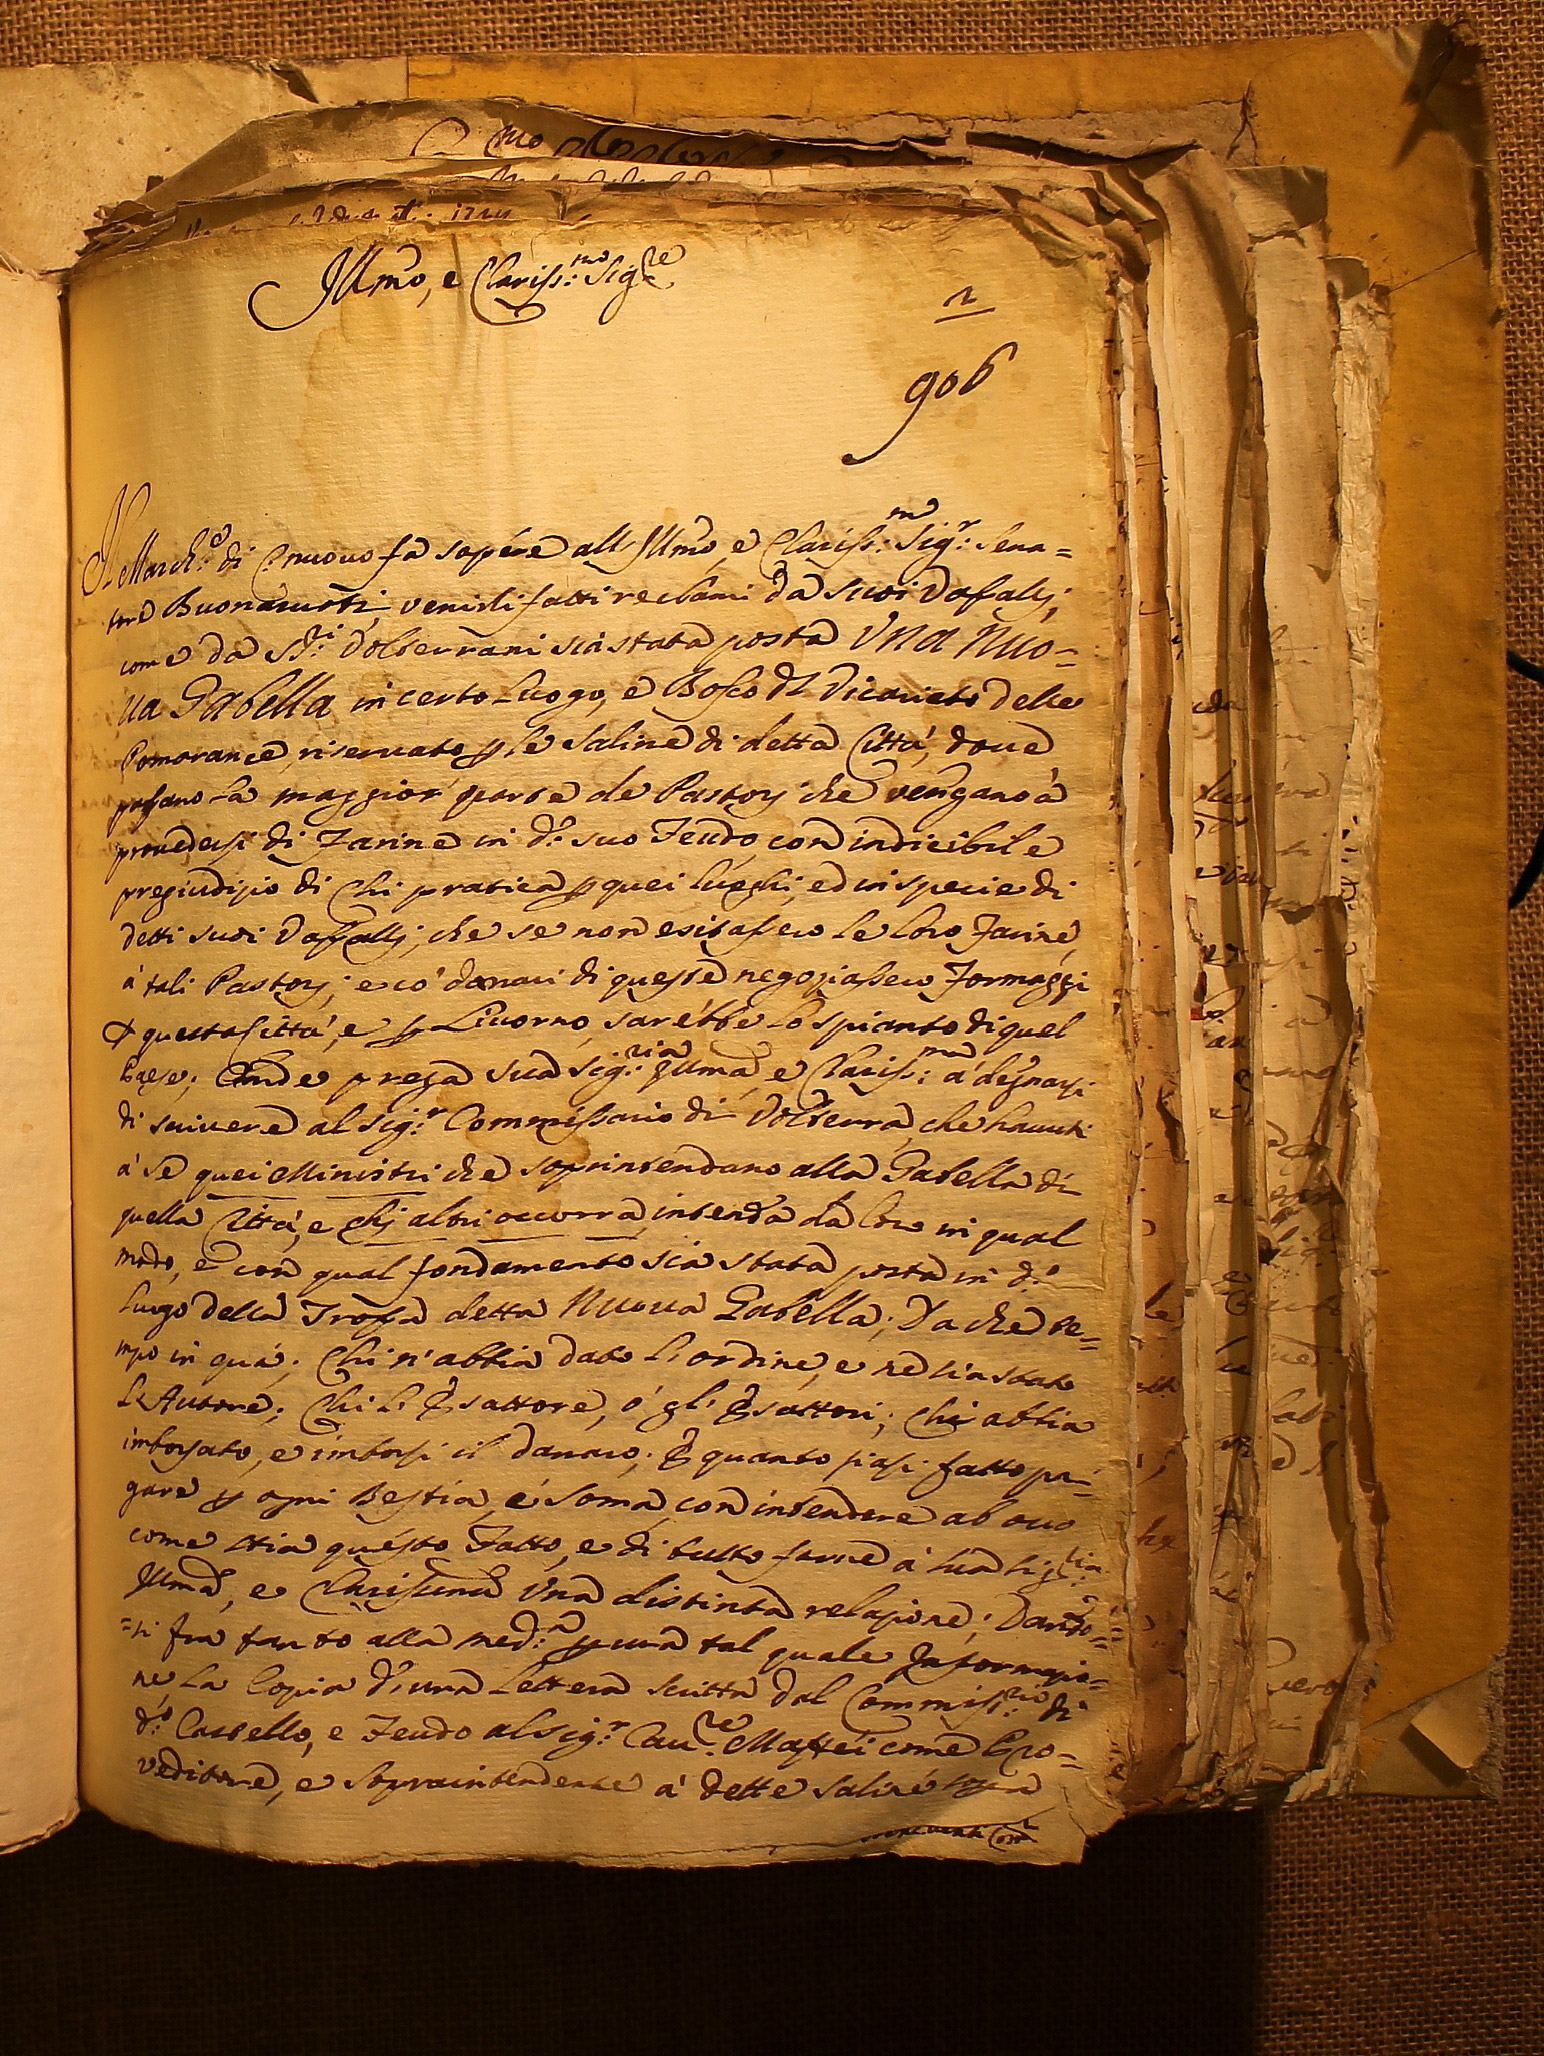 Illmo, e Clariss:mo Sig:re
2
906
Il March:e di nuovo fa sapére all Illmo, e Clariss:mo Sig:r Sena=
tore Buonarroti, venirli fatti reclami da suoi Vassallj,
come da SS:ri Volterrani sia stata posta Una Nuo=
va Gabella in certo Luogo, e Bosco dl Vicariato delle
Pomarance, riservato p le Saline di detta Città, dove
passano La maggior parte de Pastorj che vengano à
provedersi di Farine in d:o suo Feudo con indicibile
pregiudizio di Chi pratica p quei luoghi, ed in specie di
detti suoi Vassallj, che se non esitassero Le Loro Farine
à tali Pastorj, e có denari di queste negoziassero Formaggi
p questa Città, e p Livorno, sarébbe Lo spianto di quel
Paese; Onde prega sua Sig:ria Illma, e Clariss:ma à degnarsi
di scrivere al Sig:r Commissario di Volterra, che havuti
à se quei Ministri che soprintendano alla Gabella di
quella Città, e chj altri occorra, intenda da Loro in qual
modo, e con qual fondamento sia stata posta in d:o
Luogo della Trossa detta Nuova Gabella; Da che te=
mpo in quà; Chi n'abbia dato L'ordine, e ne sia stato
L'Autore; Chi L'Esattore, ó gl'Esattori; Chi abbia
imborsato, e imborsi il danaro; E quanto siasi fatto pa=
gare p ogni Bestia, e Soma, con intendere ab ovo
come stia questo Fatto, e di tutto farne à sua Sig:ria
Illma, e Clarissima Una distinta relazione; Dando=
=si fra tanto alla med:a p una tal quale Informazio=
ne La Copia d'una Lettera scritta dal Commiss:rio di
d:o Castello, e Feudo al Sig:r Cav:re Maffei come Pro=
veditore, e Sopraintendente à dette Saline